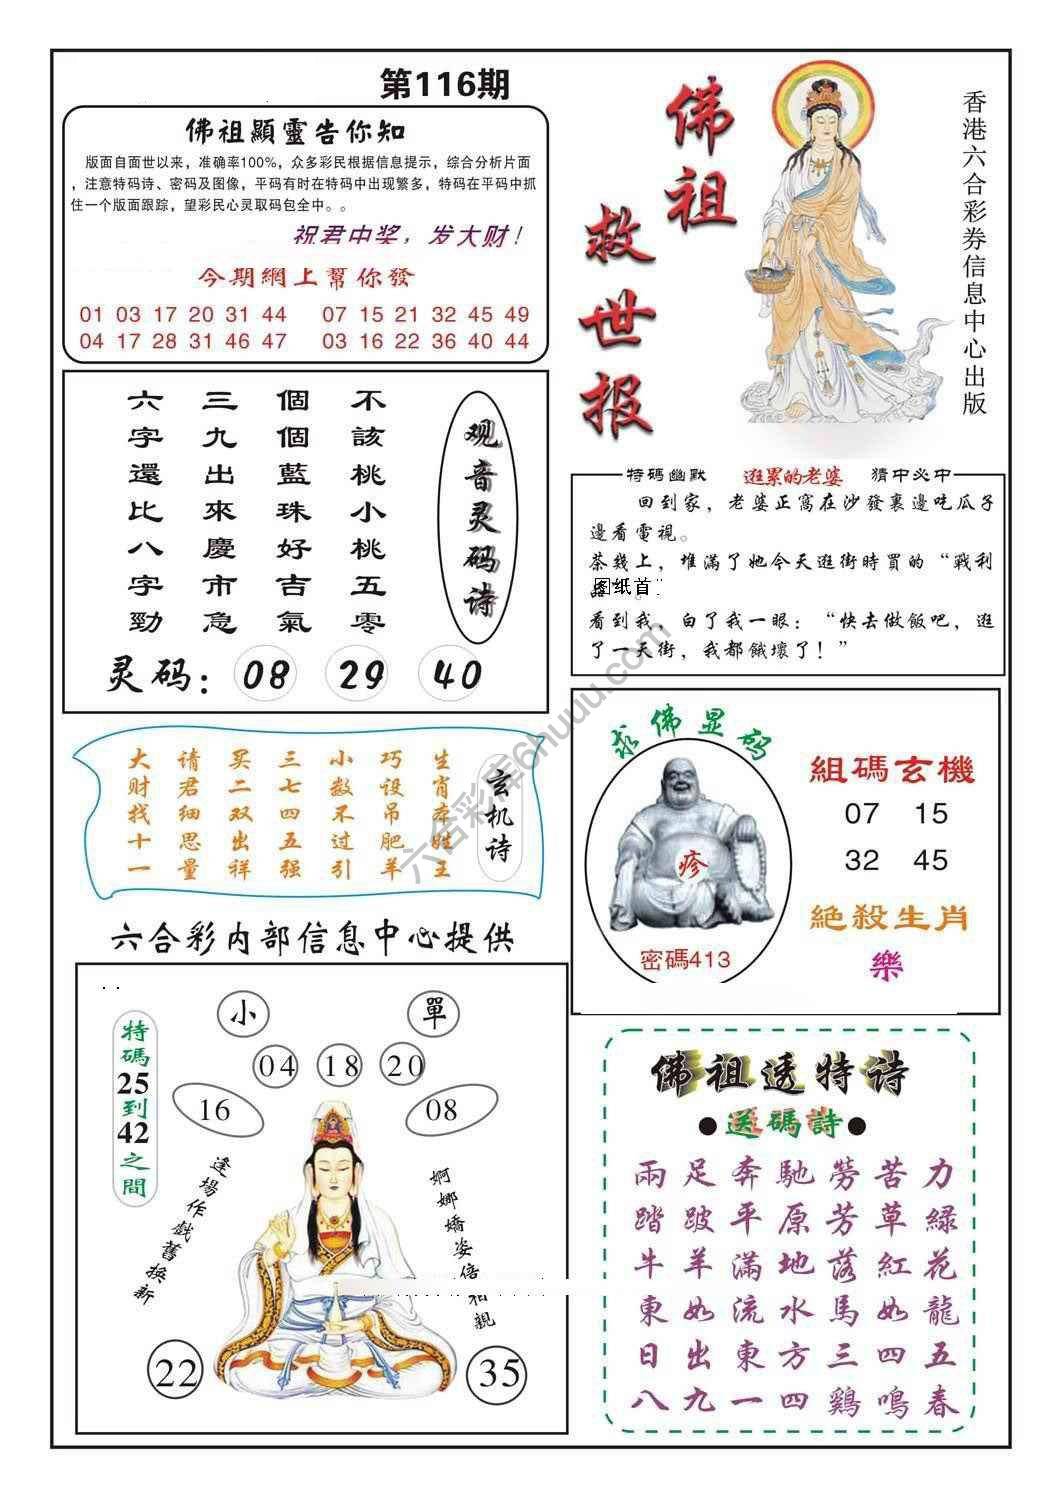 第116期
佛祖顯靈告你知
版面自面世以来，准确率100%，众多彩民根据信息提示，综合分析片面
，注意特码诗、密码及图像，平码有时在特码中出现繁多，特码在平码中抓
住一个版面跟踪，望彩民心灵取码包全中。。
祝君中奖，发大财！
今期網上幫你發
01 03 17 20 31 44 07 15 21 32 45 49
04 17 28 31 46 47 03 16 22 36 40 44
佛祖
救世报
香港六合彩券信息中心出版
观音灵码诗
不該桃小桃五零
個個藍珠好吉氣
三九出來慶市急
六字還比八字勁
灵码：08 29 40
特碼幽默 逛累的老婆 猜中必中
回到家，老婆正窩在沙發裏邊吃瓜子
邊看電視。
茶幾上，堆滿了她今天逛街時買的“戰利
图纸首
看到我，白了我一眼：“快去做飯吧，逛
了一天街，我都餓壞了！”
玄机诗
生肖本姓王
巧设吊肥羊
小数不过引
三七四五强
买二双出祥
请君细思量
大财找十一
求佛显码
疹
密碼413
組碼玄機
07 15
32 45
絕殺生肖
樂
六合彩内部信息中心提供
特碼25到42之間
小
單
04 18 20
16
08
逢場作戲舊換新
婀娜嬌姿倍相親
22
35
佛祖透特诗
●送碼詩●
兩足奔馳勞苦力
踏跛平原芳草綠
牛羊滿地落紅花
東如流水馬如龍
日出東方三四五
八九一四鷄鳴春
六合彩库6huuu.com